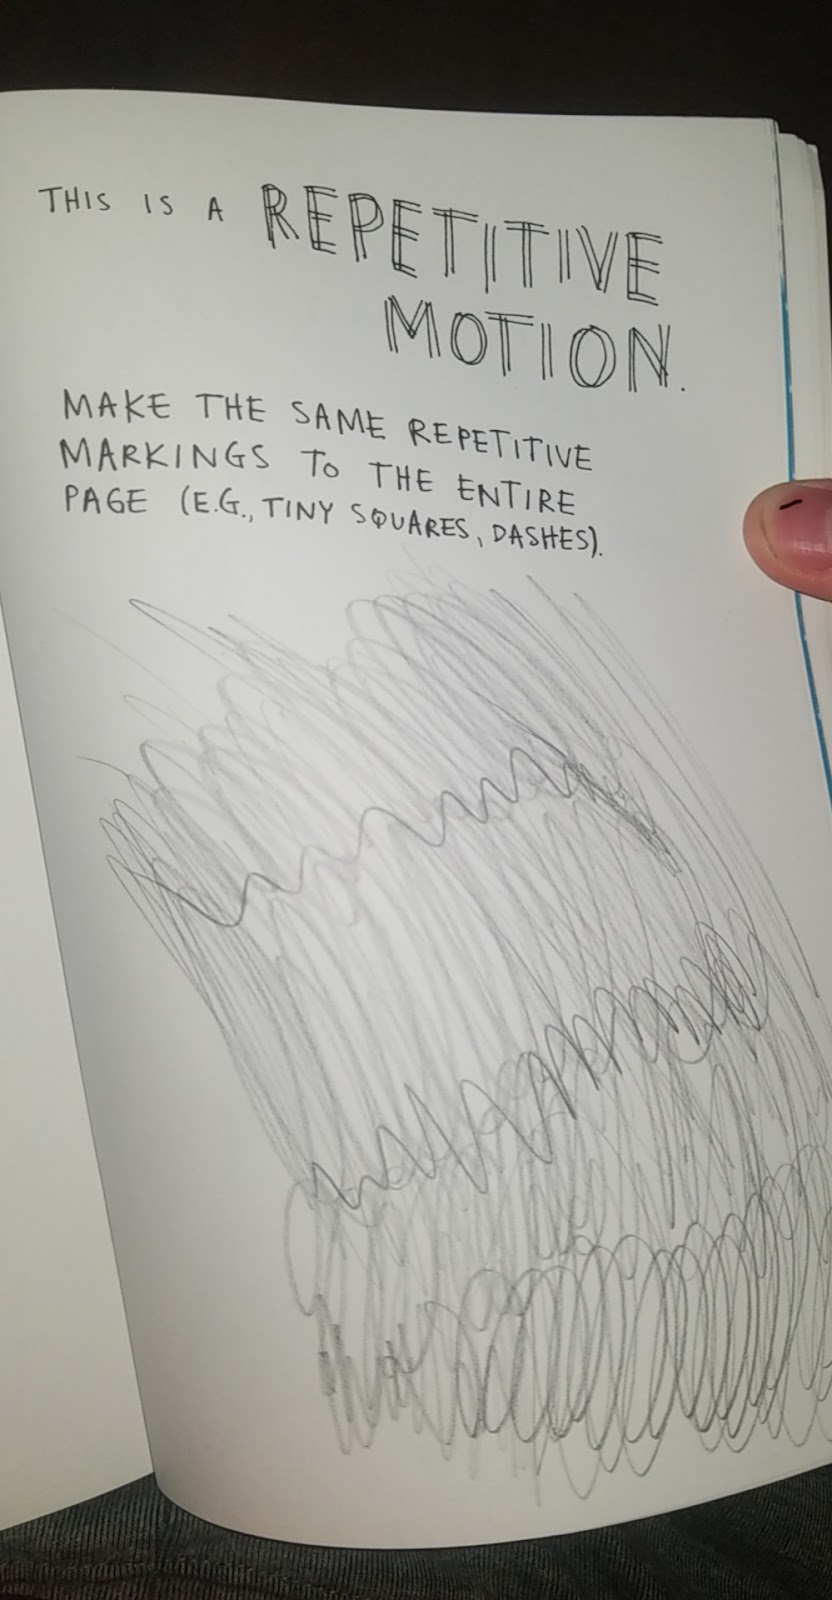 THIS IS A REPETITIVE
MOTION.
MAKE THE SAME REPETITIVE
MARKINGS TO THE ENTIRE
PAGE (E.G., TINY SQUARES, DASHES).